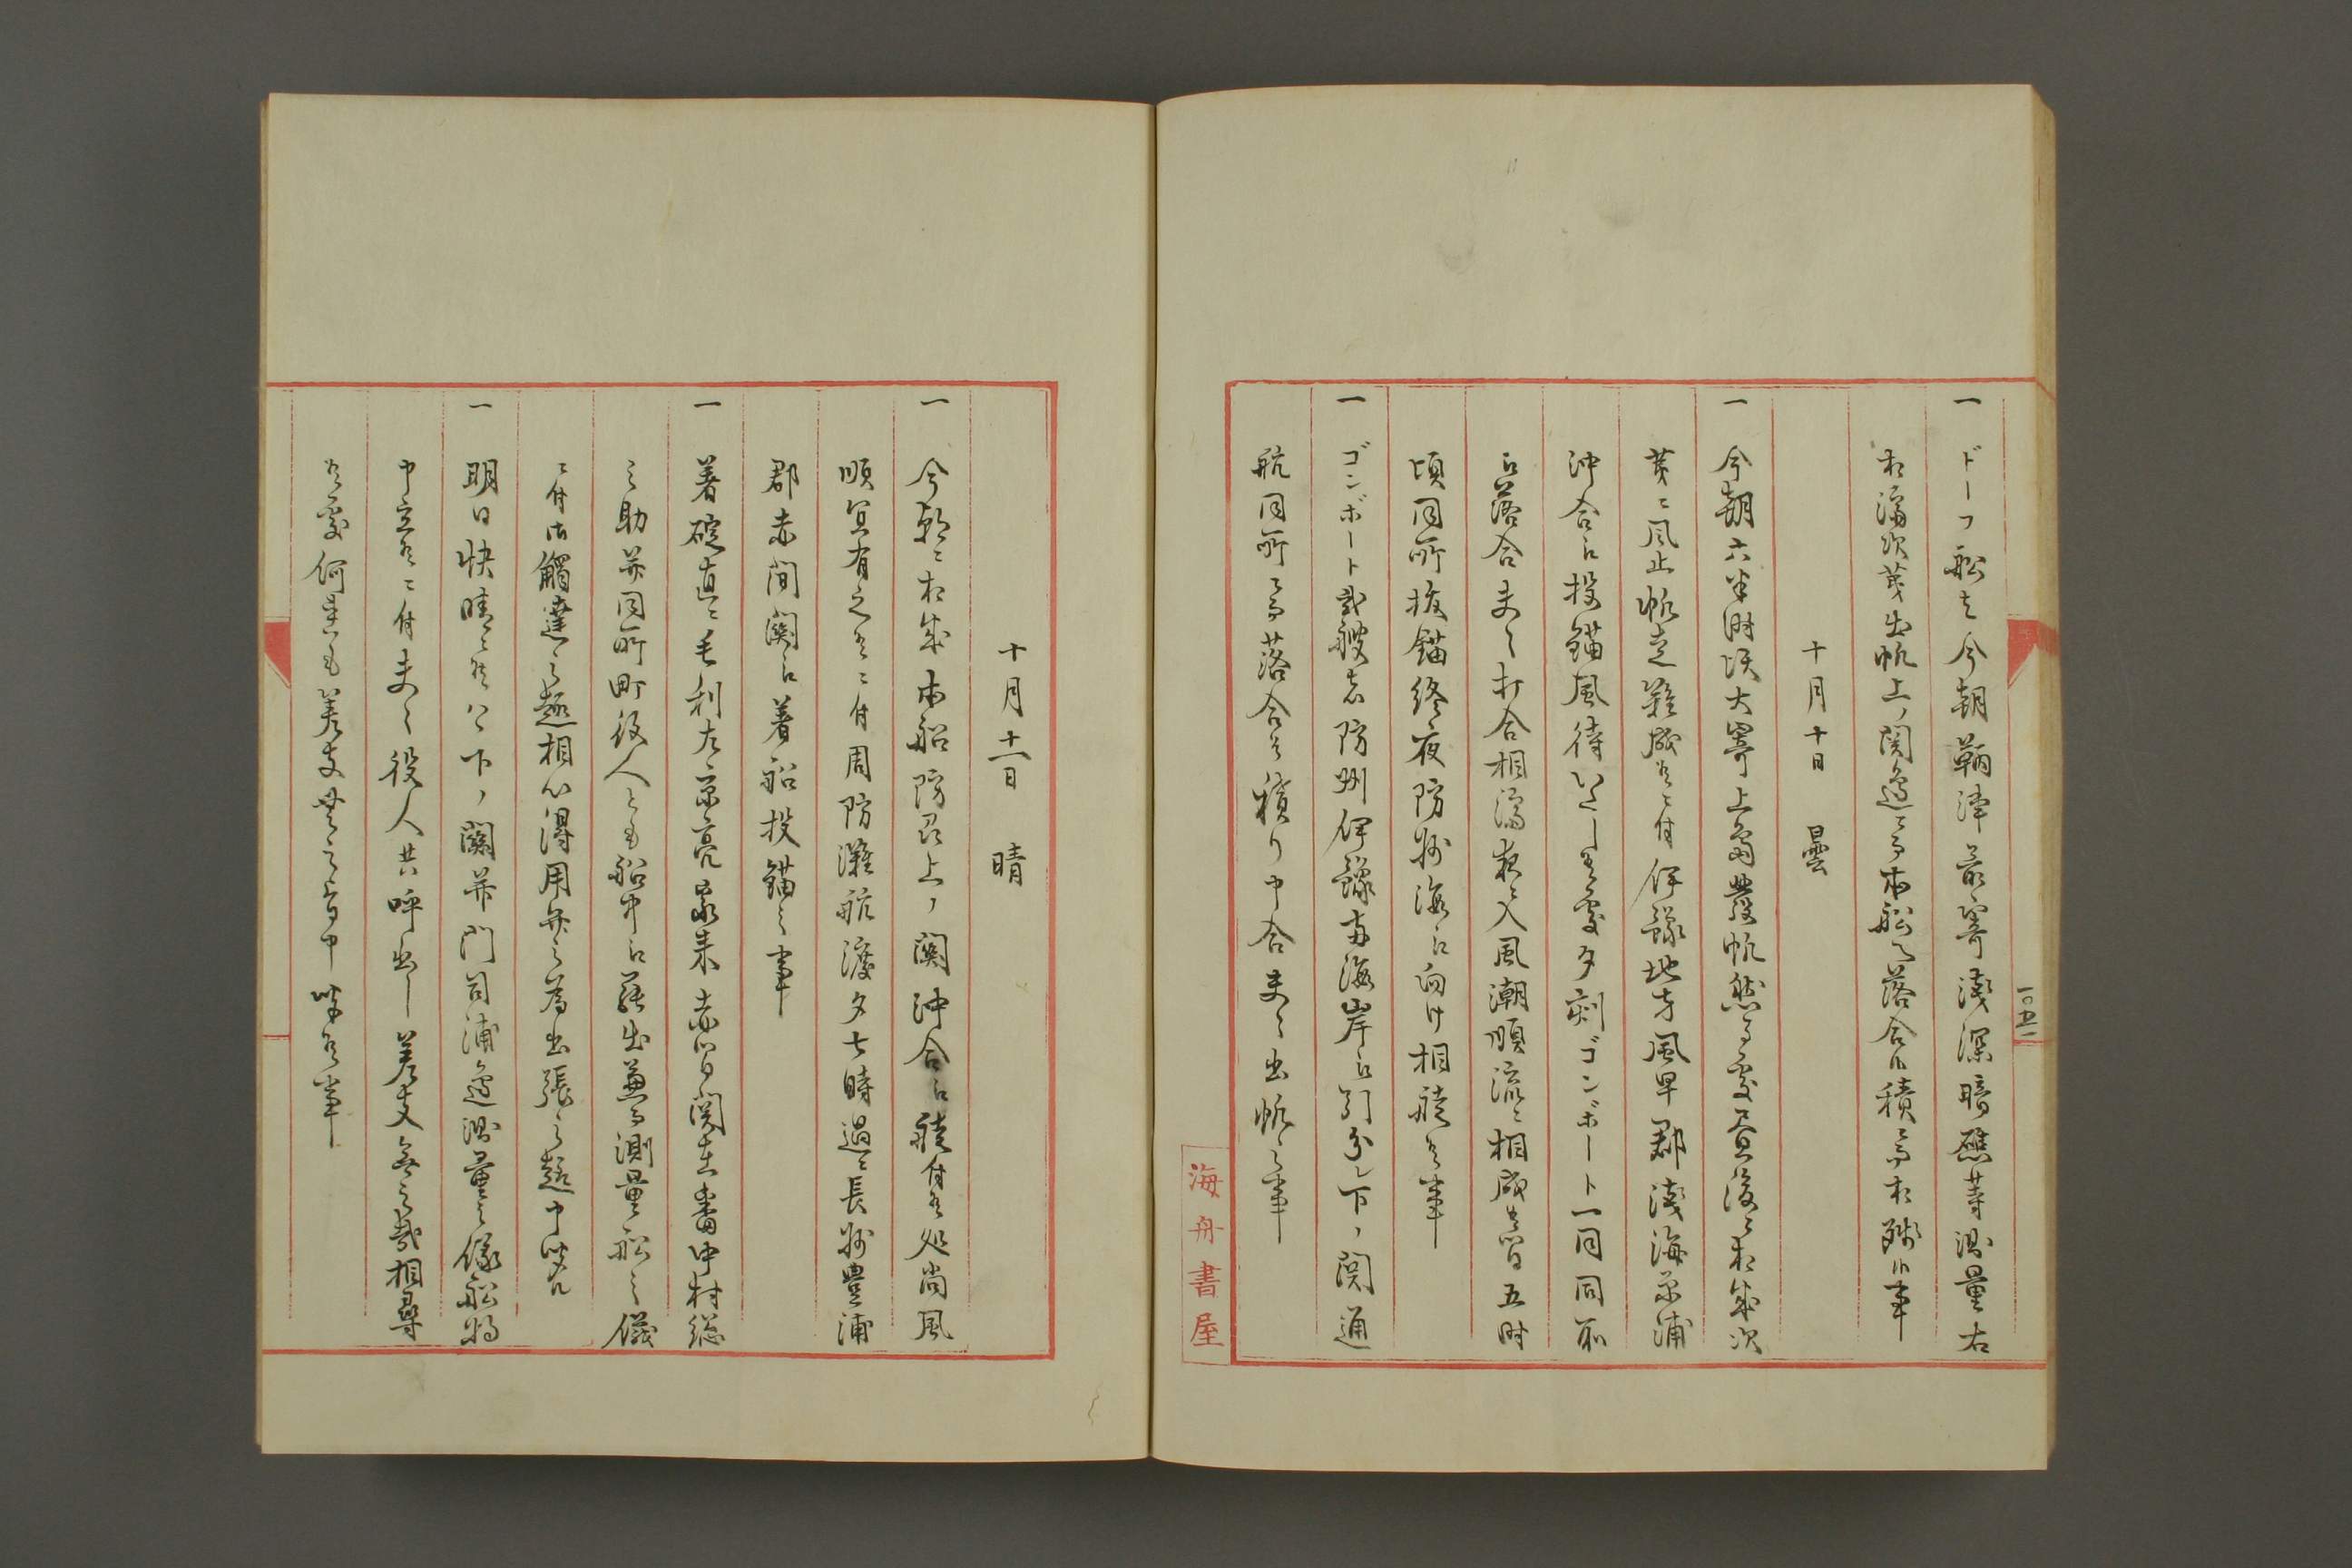 一ドーフ船之今朝鞆津最寄淺深暗礁等測量右
相濟次第出帆上ノ関邊ニ而本船江落合候積ニ而相殘候事
十月十日 曇
一今朝六半時頃大寄上島發帆然る處昼後ニ相成次
第ニ風止帆走難成候ニ付伊豫地方風早郡淺海原浦
沖合江投錨風待いたし候處夕刻ゴンボート一同同所
江落合夫々打合相濟夜ニ入風潮順流ニ相成候間五時
頃同所拔錨終夜防州海江向け相駛候事
一ゴンボート弐艘者防州伊豫両海岸江引分レ下ノ関通
航同所ニ而落合候積り申合夫々出帆之事
一〇五一
海舟書屋
十月十一日 晴
一今朝ニ相成本船防州上ノ関沖合江駛付候処尚風
順宜有之候ニ付周防灘航渡夕七時過ニ長州豊浦
郡赤間関江着船投錨之事
一着碇直ニ毛利左京亮家来赤間関在番中村総
之助并同所町役人とも船中江罷出兼而測量船之儀
ニ付御觸達之趣相心得用弁之為出張之趣申聞候
一明日快晴ニ候ハヽ下ノ関并門司浦邊測量之儀船将
申立候ニ付夫々役人共呼出し差支無之哉相尋
候處何連も差支無之旨申聞候事